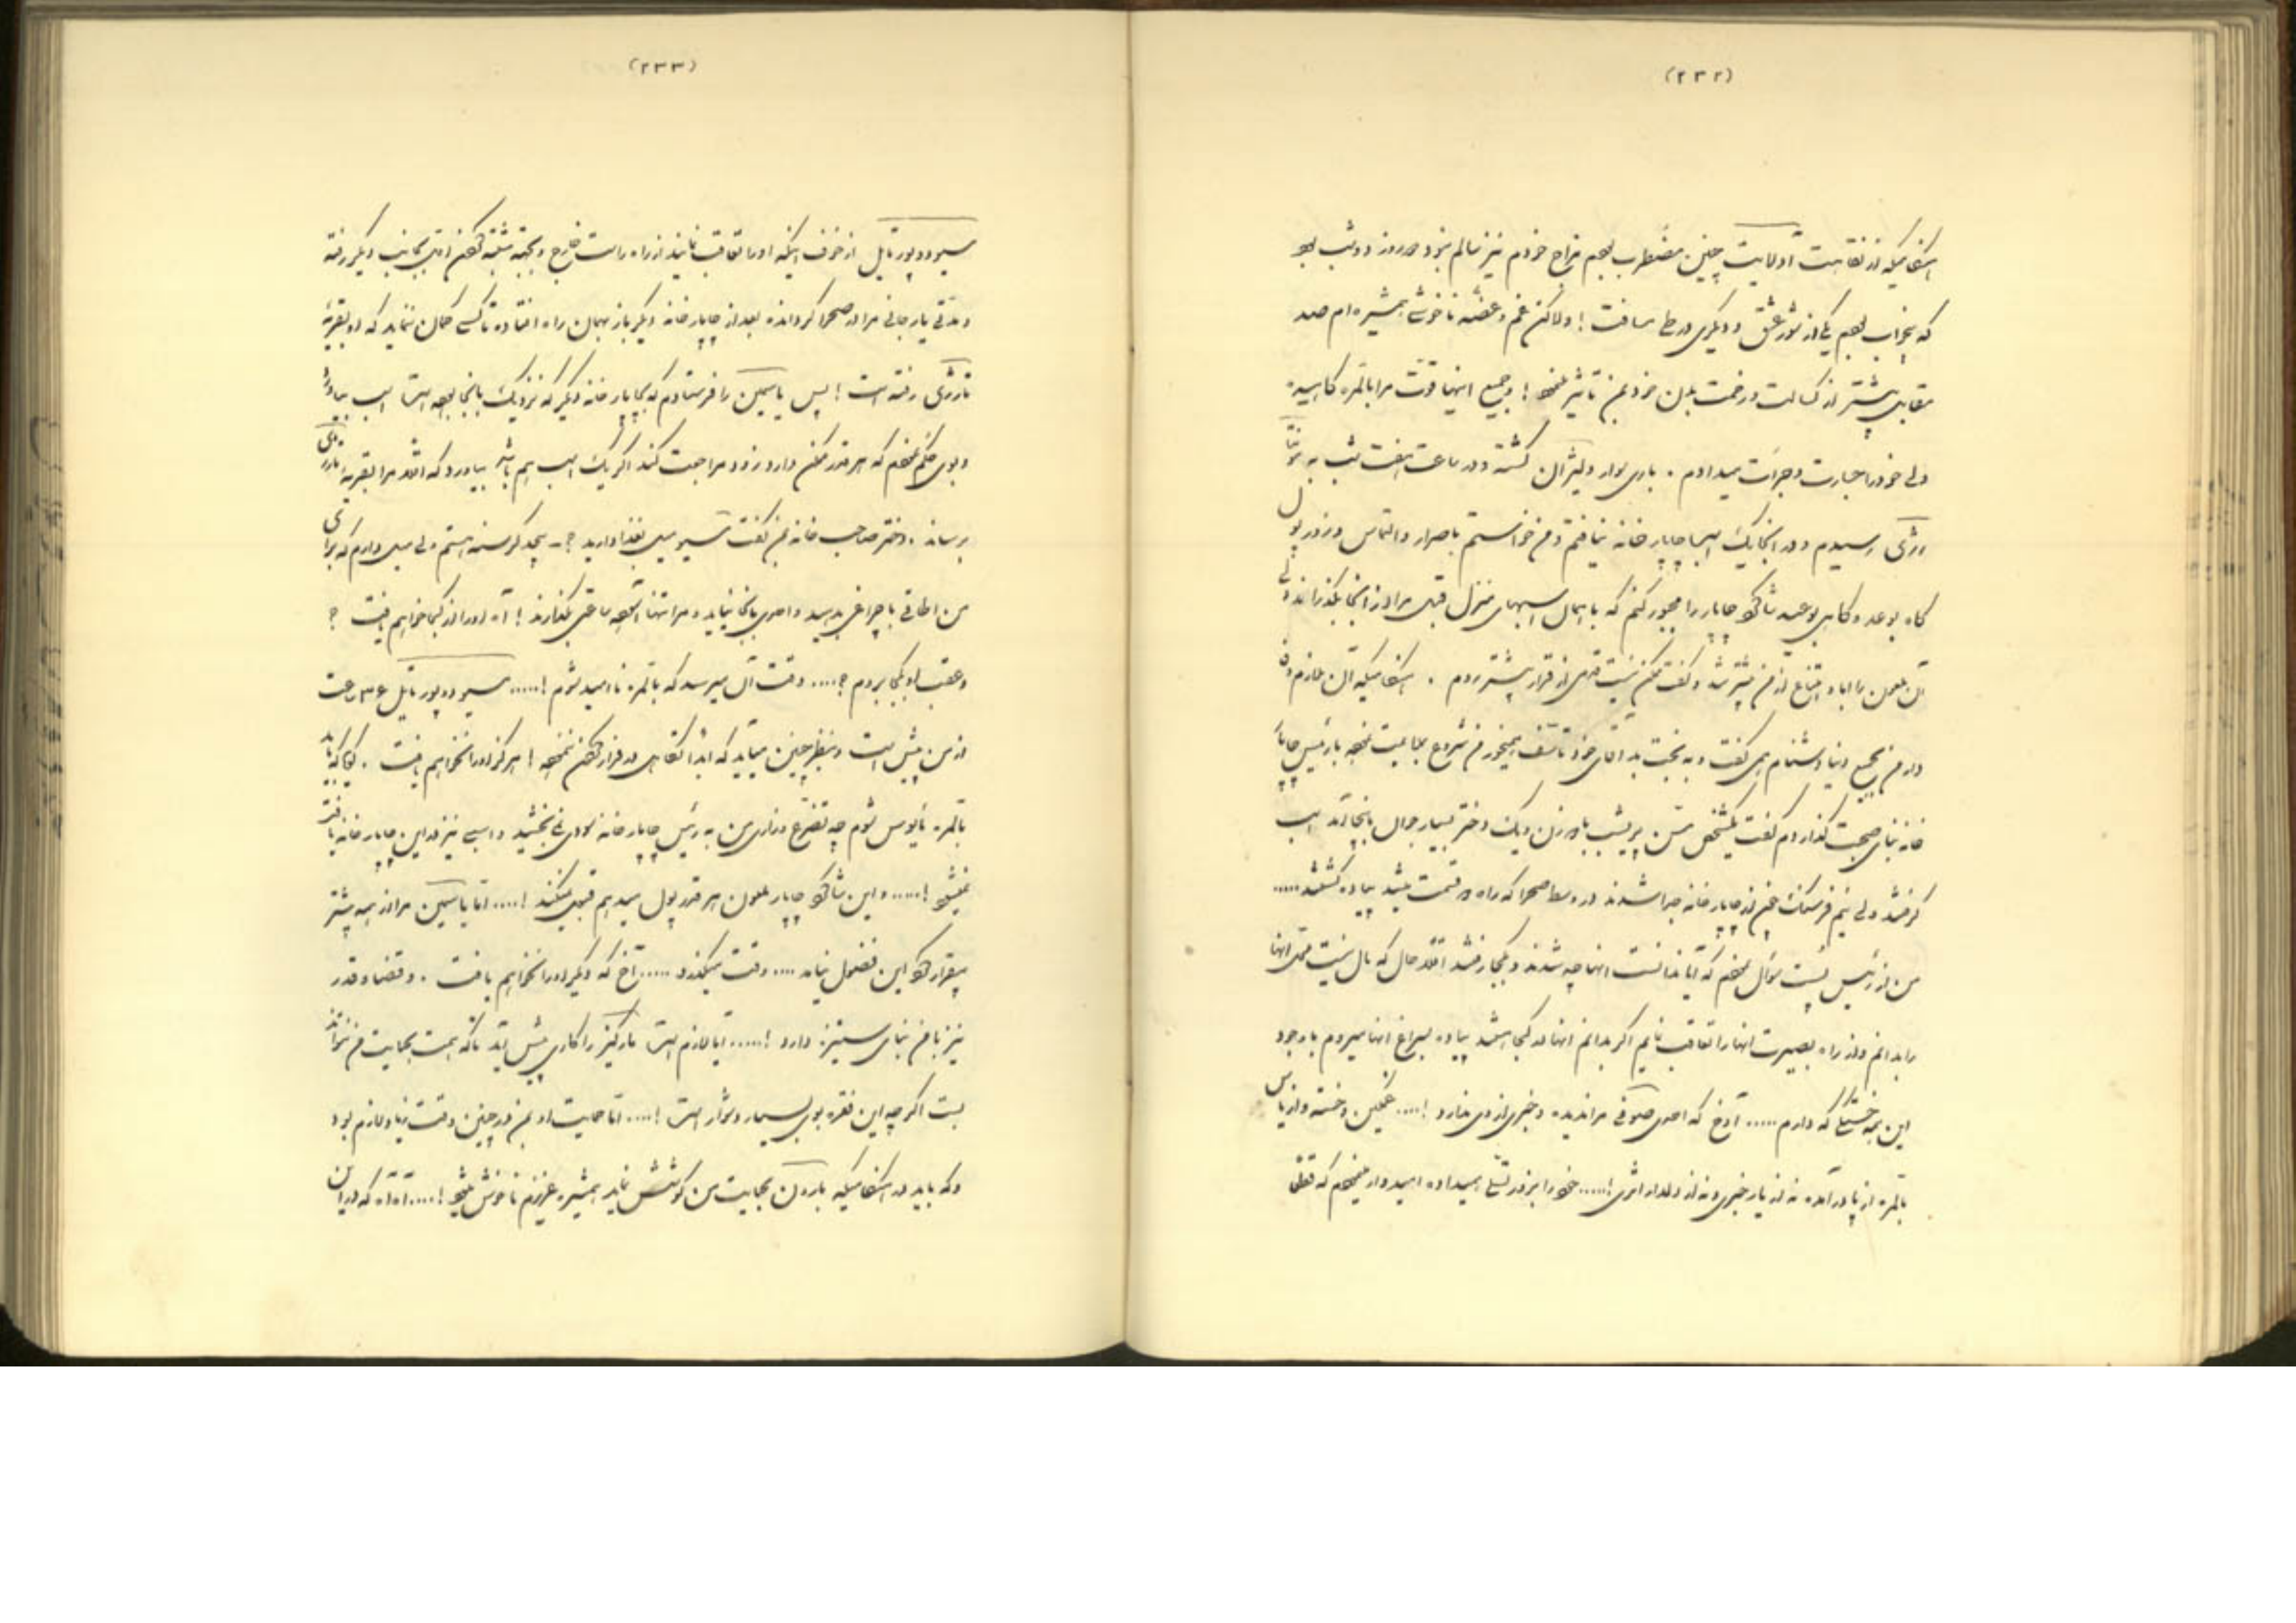 (۲۳۲)
چنین مضطرب بودم مزاج خودم نیز سالم نبود دو روز دو شب بود
که بیخواب بودم یکی از شور عشق و دیگری در طی مسافت ! ولاکن غم و غصه ناخوشی همشیره‌ام صد
مقابل بیشتر از کسالت و زحمت بدن خود بمن تاثیر مینمود ! و جمیع اینها قوت مرا بالمره کاهیده
ولی خود را جسارت و جرأت میدادم . باری سوار دلیژان گشته و در ساعت هفت شب به
رسیدم و در آنجا یک اسب چاپارخانه نیافتم و من خواستم باصرار و التماس و زور پول
گاه بوعد و گاهی بوعید شاگرد چاپار را مجبور کنم که با همان اسبهای منزل قبل مرا از آنجا بگذراند ولی
آن ملعون را ابا و امتناع از من بیشتر شد و گفت ممکن نیست قدمی از قرار پیشتر روم .
دار من بجمیع دنیا دشنام همی گفت و به بخت بد آقای خود تأسف میخورد من شروع نموده با رئیس چاپار
خانه بنای صحبت گذاردم گفت یکشخص مسن پریشب با دو زن و یک دختر بسیار جوان بانجا آمد اسب
گرفتند ولی نیم فرسنگ از چاپارخانه جدا شدند در وسط صحرا که راه دو قسمت میشد پیاده گشتند .....
من از رئیس پست سؤال نمودم که آیا ندانست آنها چه شدند و بکجا رفتند اقلا حال که
را بدانم و از راه بصیرت آنها را تعاقب نمایم اگر بدانم آنها در کجا هستند پیاده بسراغ آنها میروم با وجود
این همه خستگی که دارم ..... آوخ که احدی صوفی مرا ندیده و خبری از وی ندارد !.... غمگین و خسته و از یأس
بالمره از پا در آمده نه از یار خبری و نه از دلدار اثری !..... خود را بزور تسلی همیداده امیدوار مینمودم که
(۲۳۳)
مسیو دو پورتایل از خوف اینکه او را تعاقب نمایند از راه راست خارج و بجهة مشتبه کردن بجانب دیگر رفته
و مدتی یار جانی مرا در صحرا گردانده بعد از چاپارخانه دیگر باز بهمان راه افتاده تا کسی گمان ننماید که او بقریهٔ
رفته است ! پس یاسمین را فرستادم که بچاپارخانه دیگر که نزدیک بانجا بود است اسب بیاورد
و بوی حکم نمودم که هر قدر ممکن دارد زود مراجعت کند اگر یک اسب هم باشد بیاورد که اقلا مرا بقریهٔ
برساند . دختر صاحب خانه بمن گفت مسیو میل بغذا دارید ؟ - بیحد گرسنه هستم ولی میل دارم که برای
من اطاقی با چراغی بدهید و احدی بانجا نیاید و مرا تنها ساعتی بگذارند ! آه او را از کجا خواهیم یافت ؟
و عقب او بکجا بروم ؟.... وقت آن میرسد که بالمره ناامید شوم !..... مسیو دو پورتایل ۳۶ ساعت
از من پیش است و بنظر چنین میآید که ابدا تکاهل در فرار کردن ننموده ! هرگز او را نخواهیم یافت .
بالمره مأیوس شوم چه تضرع و زاری من به رئیس چاپارخانه سودی نمی‌بخشید و اسبی نیز در این چاپارخانه یافت
نمیشود !..... و این شاگرد چاپار ملعون هر قدر پول میدهم قبول نمیکند !.... اما یاسمین مرا از همه بیشتر
بیقرار کرد این فضول نیامد .... وقت میگذرد ..... آخ که دیگر او را نخواهیم یافت . و قضا و قدر
نیز با من بنای ستیزه دارد !..... آیا لازم است مارکیز را کاری پیش آید تا که همت بحمایت من نتواند
بست اگر چه این فقره بوی بسیار دشوار است !.... اما حمایت او بمن در چنین وقت زیاد لازم بود
و که باید در بارون بحمایت من کوشش نماید همشیره عزیزم ناخوش میشود !.... آه آه که در این